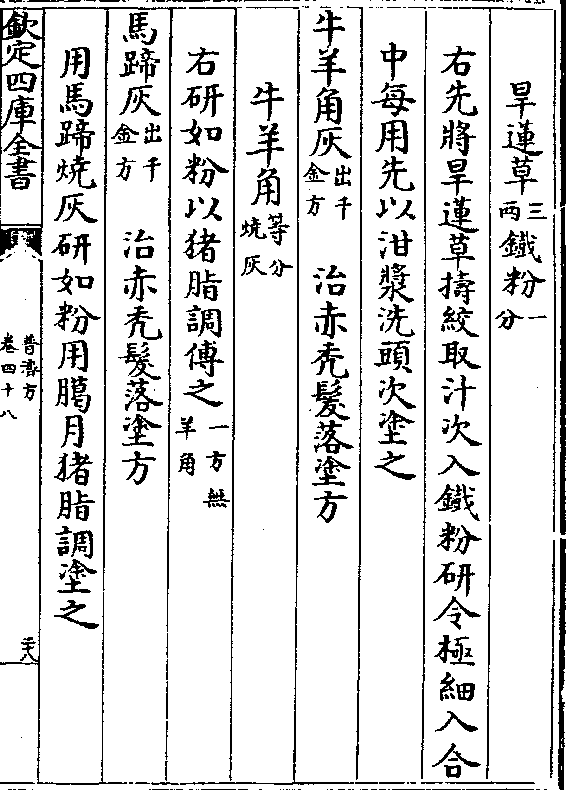 旱蓮草三兩鐵粉一分
右先將旱蓮草擣絞取汁次入鐵粉研令極細入合
中每用先以泔漿洗頭次塗之
牛羊角灰出千金方 治赤禿髮落塗方
牛羊角等分燒灰
右研如粉以猪脂調傅之一方無羊角
馬蹄灰出千金方 治赤禿髮落塗方
用馬蹄燒灰研如粉用臈月猪脂調塗之
欽定四庫全書
普濟方
卷四十八
二八